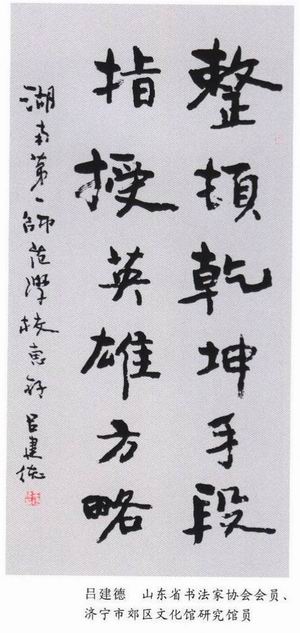 整顿乾坤手段
指授英雄方略
湖南第一师范学校惠存
吕建德
吕建德 山东省书法家协会会员、
济宁市郊区文化馆研究馆员